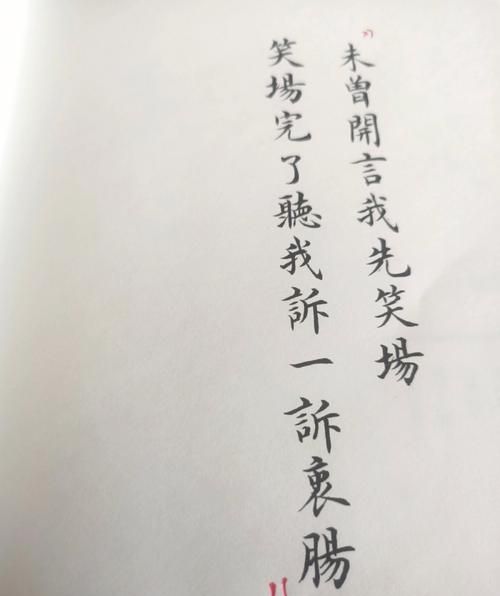 未曾開言我先笑場
笑場完了聽我訴一訴衷腸